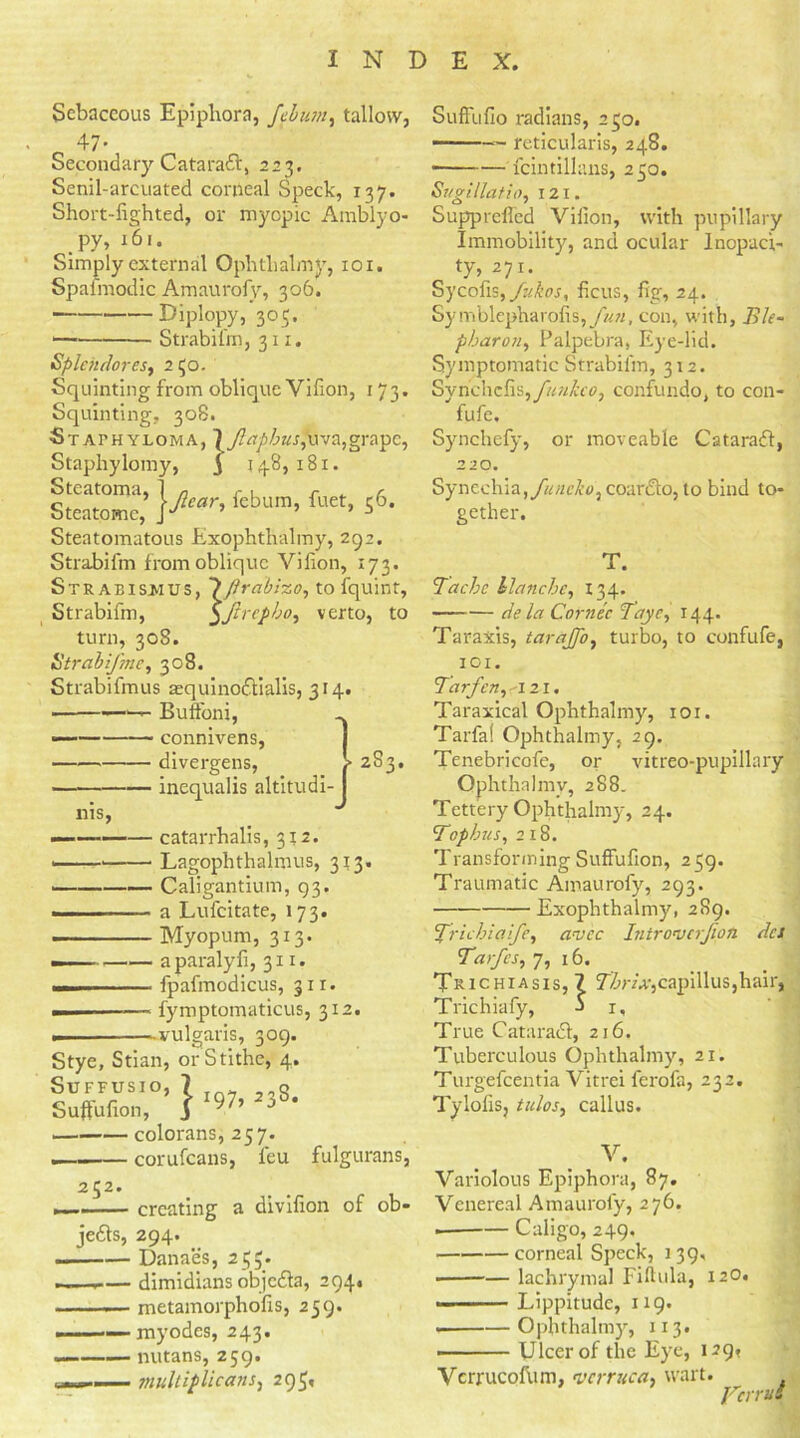 INDEX.
Sebaceous Epiphora, ſebum, tallow,
47.
Secondary Cataract, 223.
Senil-arcuated corneal Speck, 137.
Short-ſighted, or myopic Amblyo-
py, 161.
Simply external Ophthalmy, 101.
Spaſmodic Amauroſy, 306.
——— Diplopy, 305.
——— Strabiſm, 311.
Splendores, 250.
Squinting from oblique Viſion, 173.
Squinting, 308.
STAPHYLOMA, } ſtaphus, uva, grape,
Staphylomy, } 148, 181.
Steatoma, } ſtear, ſebum, ſuet, 56.
Steatome, }
Steatomatous Exophthalmy, 292.
Strabiſm from oblique Viſion, 173.
STRABISMUS, } ſtrabizo, to ſquint,
Strabiſm, } ſtrepho, verto, to
turn, 308.
Strabiſme, 308.
Strabiſmus æquinoctialis, 314.
——— Buffoni,
——— connivens,
——— divergens, } 283.
——— inequalis altitudi-
nis,
——— catarrhalis, 312.
——— Lagophthalmus, 313.
——— Caligantium, 93.
——— a Luſcitate, 173.
——— Myopum, 313.
——— a paralyſi, 311.
——— ſpaſmodicus, 311.
——— ſymptomaticus, 312.
——— vulgaris, 309.
Stye, Stian, or Stithe, 4.
SUFFUSIO, } 197, 238.
Suffuſion, }
——— colorans, 257.
——— coruſcans, ſeu fulgurans,
252.
——— creating a diviſion of ob-
jects, 294.
——— Danaës, 255.
——— dimidians objecta, 294.
——— metamorphoſis, 259.
——— myodes, 243.
——— nutans, 259.
——— multiplicans, 295.
Suffuſio radians, 250.
——— reticularis, 248.
——— ſcintillans, 250.
Sugillatio, 121.
Suppreſſed Viſion, with pupillary
Immobility, and ocular Inopaci-
ty, 271.
Sycoſis, ſukos, ficus, fig, 24.
Symblepharoſis, ſun, con, with, Ble-
pharon, Palpebra, Eye-lid.
Symptomatic Strabiſm, 312.
Syncheſis, ſunkeo, confundo, to con-
fuſe.
Syncheſy, or moveable Cataract,
220.
Synechia, ſuneko, coarcto, to bind to-
gether.
T.
Tache blanche, 134.
——— de la Cornée Taye, 144.
Taraxis, taraſſo, turbo, to confuſe,
101.
Tarſen, 121.
Taraxical Ophthalmy, 101.
Tarſal Ophthalmy, 29.
Tenebricoſe, or vitreo-pupillary
Ophthalmy, 288.
Tettery Ophthalmy, 24.
Tophus, 218.
Transforming Suffuſion, 259.
Traumatic Amauroſy, 293.
——— Exophthalmy, 289.
Trichiaiſe, avec Introverſion des
Tarſes, 7, 16.
TRICHIASIS, } Thrix, capillus, hair,
Trichiaſy, } 1.
True Cataract, 216.
Tuberculous Ophthalmy, 21.
Turgeſcentia Vitrei ſeroſa, 232.
Tyloſis, tulos, callus.
V.
Variolous Epiphora, 87.
Venereal Amauroſy, 276.
——— Caligo, 249.
——— corneal Speck, 139.
——— lachrymal Fiſtula, 120.
——— Lippitude, 119.
——— Ophthalmy, 113.
——— Ulcer of the Eye, 129.
Verrucoſum, verruca, wart.
Verrue